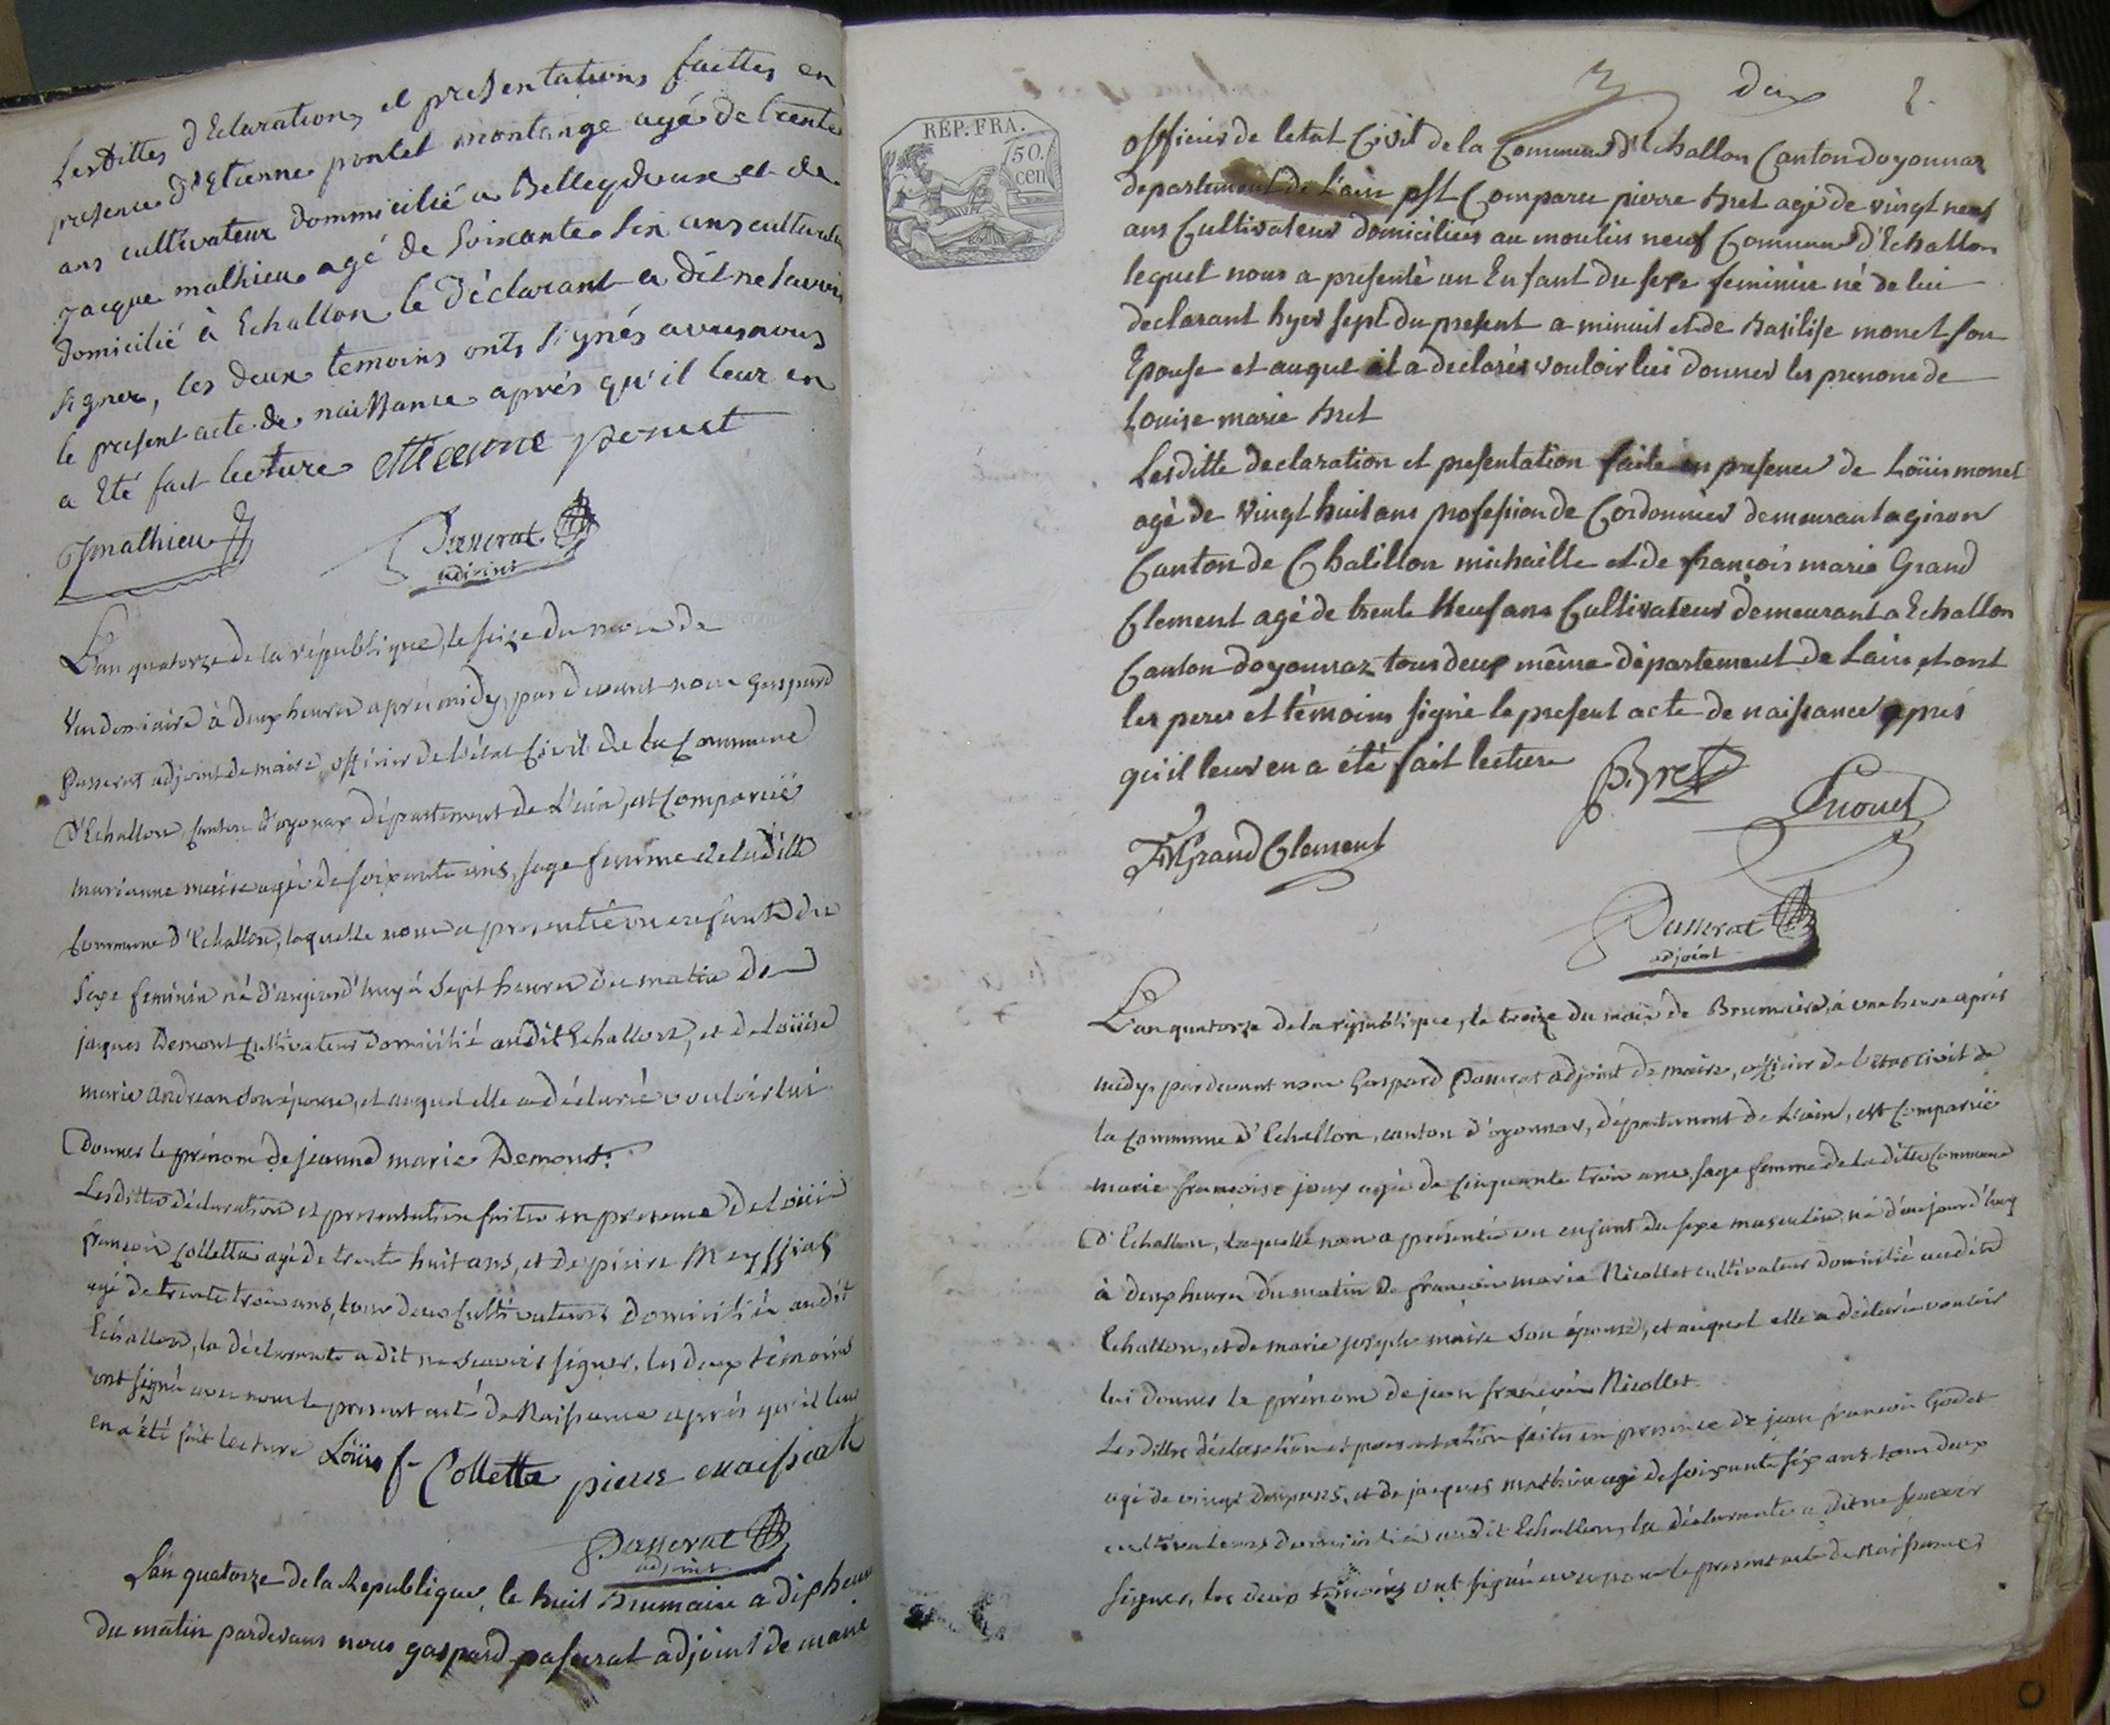 Lesdittes dEclarations et presentations faittes en
presence d'Etienne pontet montange agé de trente
ans cultivateur dommicilié a Belleydoux et de
jacque mathieu agé de soixante six ans cultivateur
domicilié à Echallon le déclarant a dit ne savoir
signer, les deux temoins onts signés avec nous
le present acte de naissance aprés qu'il leur en
a Eté fait lecture ettienne ponut
Jmathieu Passerat
adjoint
L'an quatorze de la république, le seize du mois de
Vendemiaire à deux heures aprés midy, par devant nous Gaspard
Passerat adjoint de maire, officier de l'état Civil de la Commune
d'Echallon, canton d'oyonax département de L'ain, est Comparuë
marianne maire agée de soixante ans, sage femme de laditte
Commune d'Echallon, laquelle nous a presentée un enfant du
sexe feminin né d'aujourd'huy à sept heures du matin de
jaques Demont Cultivateur domicilié audit Echallon, et de Loüise
marie andrean son épouse, et auquel elle a déclaré vouloir lui
donner le prénom de jeanne marie Demont.
Lesdittes déclaration et presentation faites en presence de Loüis
françois Collettaz agé de trente huit ans, et de pierre Meyssiat
agé de trente trois ans, tous deux Cultivateurs domiciliés audit
Echallon, la déclarante a dit ne scavoir signer, les deux témoins
ont signé avec nous le present acte de Naissance aprés qu'il leur
en a été fait lecture Loüis f Collettaz pierre maissiat
Passerat
adjoint
L'an quatorze de la Republique, le huit Brumaire a dix heures
du matin pardevant nous gaspard passerat adjoint de maire
deux 2.
RÉP. FRA.
50.
cen
officier de letat Civil de la Commune d'Echallon Canton doyonnaz
departement de L'ain est Comparu pierre Bret agé de vingt neuf
ans Cultivateur domiciliés au moulin neuf Commune d'Echallon
lequel nous a presenté un Enfant du sexe feminin né de lui
declarant hyer sept du present a minuit et de Basilise monet son
Epouse et auquel il a declarés vouloir lui donner les prenom de
Louise marie Bret
Lesditte declaration et presentation faite en presence de Loüis monet
agé de vingt huit ans profession de Cordonnier demeurant a giron
Canton de Chatillon michaille et de françois marie Grand
Clement agé de trente Neuf ans Cultivateur demeurant a Echallon
Canton doyonnaz tous deux même département de Lain et ont
les peres et témoins signé le present acte de naissance aprés
qu'il leur en a été fait lecture P. Bret
Lmonet
FMGrandClement
Passerat
adjoint
L'an quatorze de la république, le treize du mois de Brumaire, à une heure aprés
midy, pardevant nous Gaspard Passerat adjoint de maire, officier de l'état civil de
la Commune d'Echallon, canton d'oyonnax, département de L'ain, est Comparuë
marie françoise joux agée de Cinquante trois ans, sage femme de la ditte Commune
d'Echallon, laquelle nous a présentée un enfant du sexe masculin, né d'aujourd'huy
à deux heures du matin de françois marie Nicollet cultivateur domicilié audit
Echallon, et de marie joseph maire son épouse, et auquel elle a déclaré vouloir
lui donner le prénom de jean françois Nicollet.
Lesdittes déclaration et presentation faites en presence de jean françois Godet
agé de vingt deux ans, et de jacques mathieu agé de soixante six ans tous deux
cultivateurs domiciliés audit Echallon, la déclarante a dit ne scavoir
signer, les deux temoins ont signé avec nous le present acte de Naissance